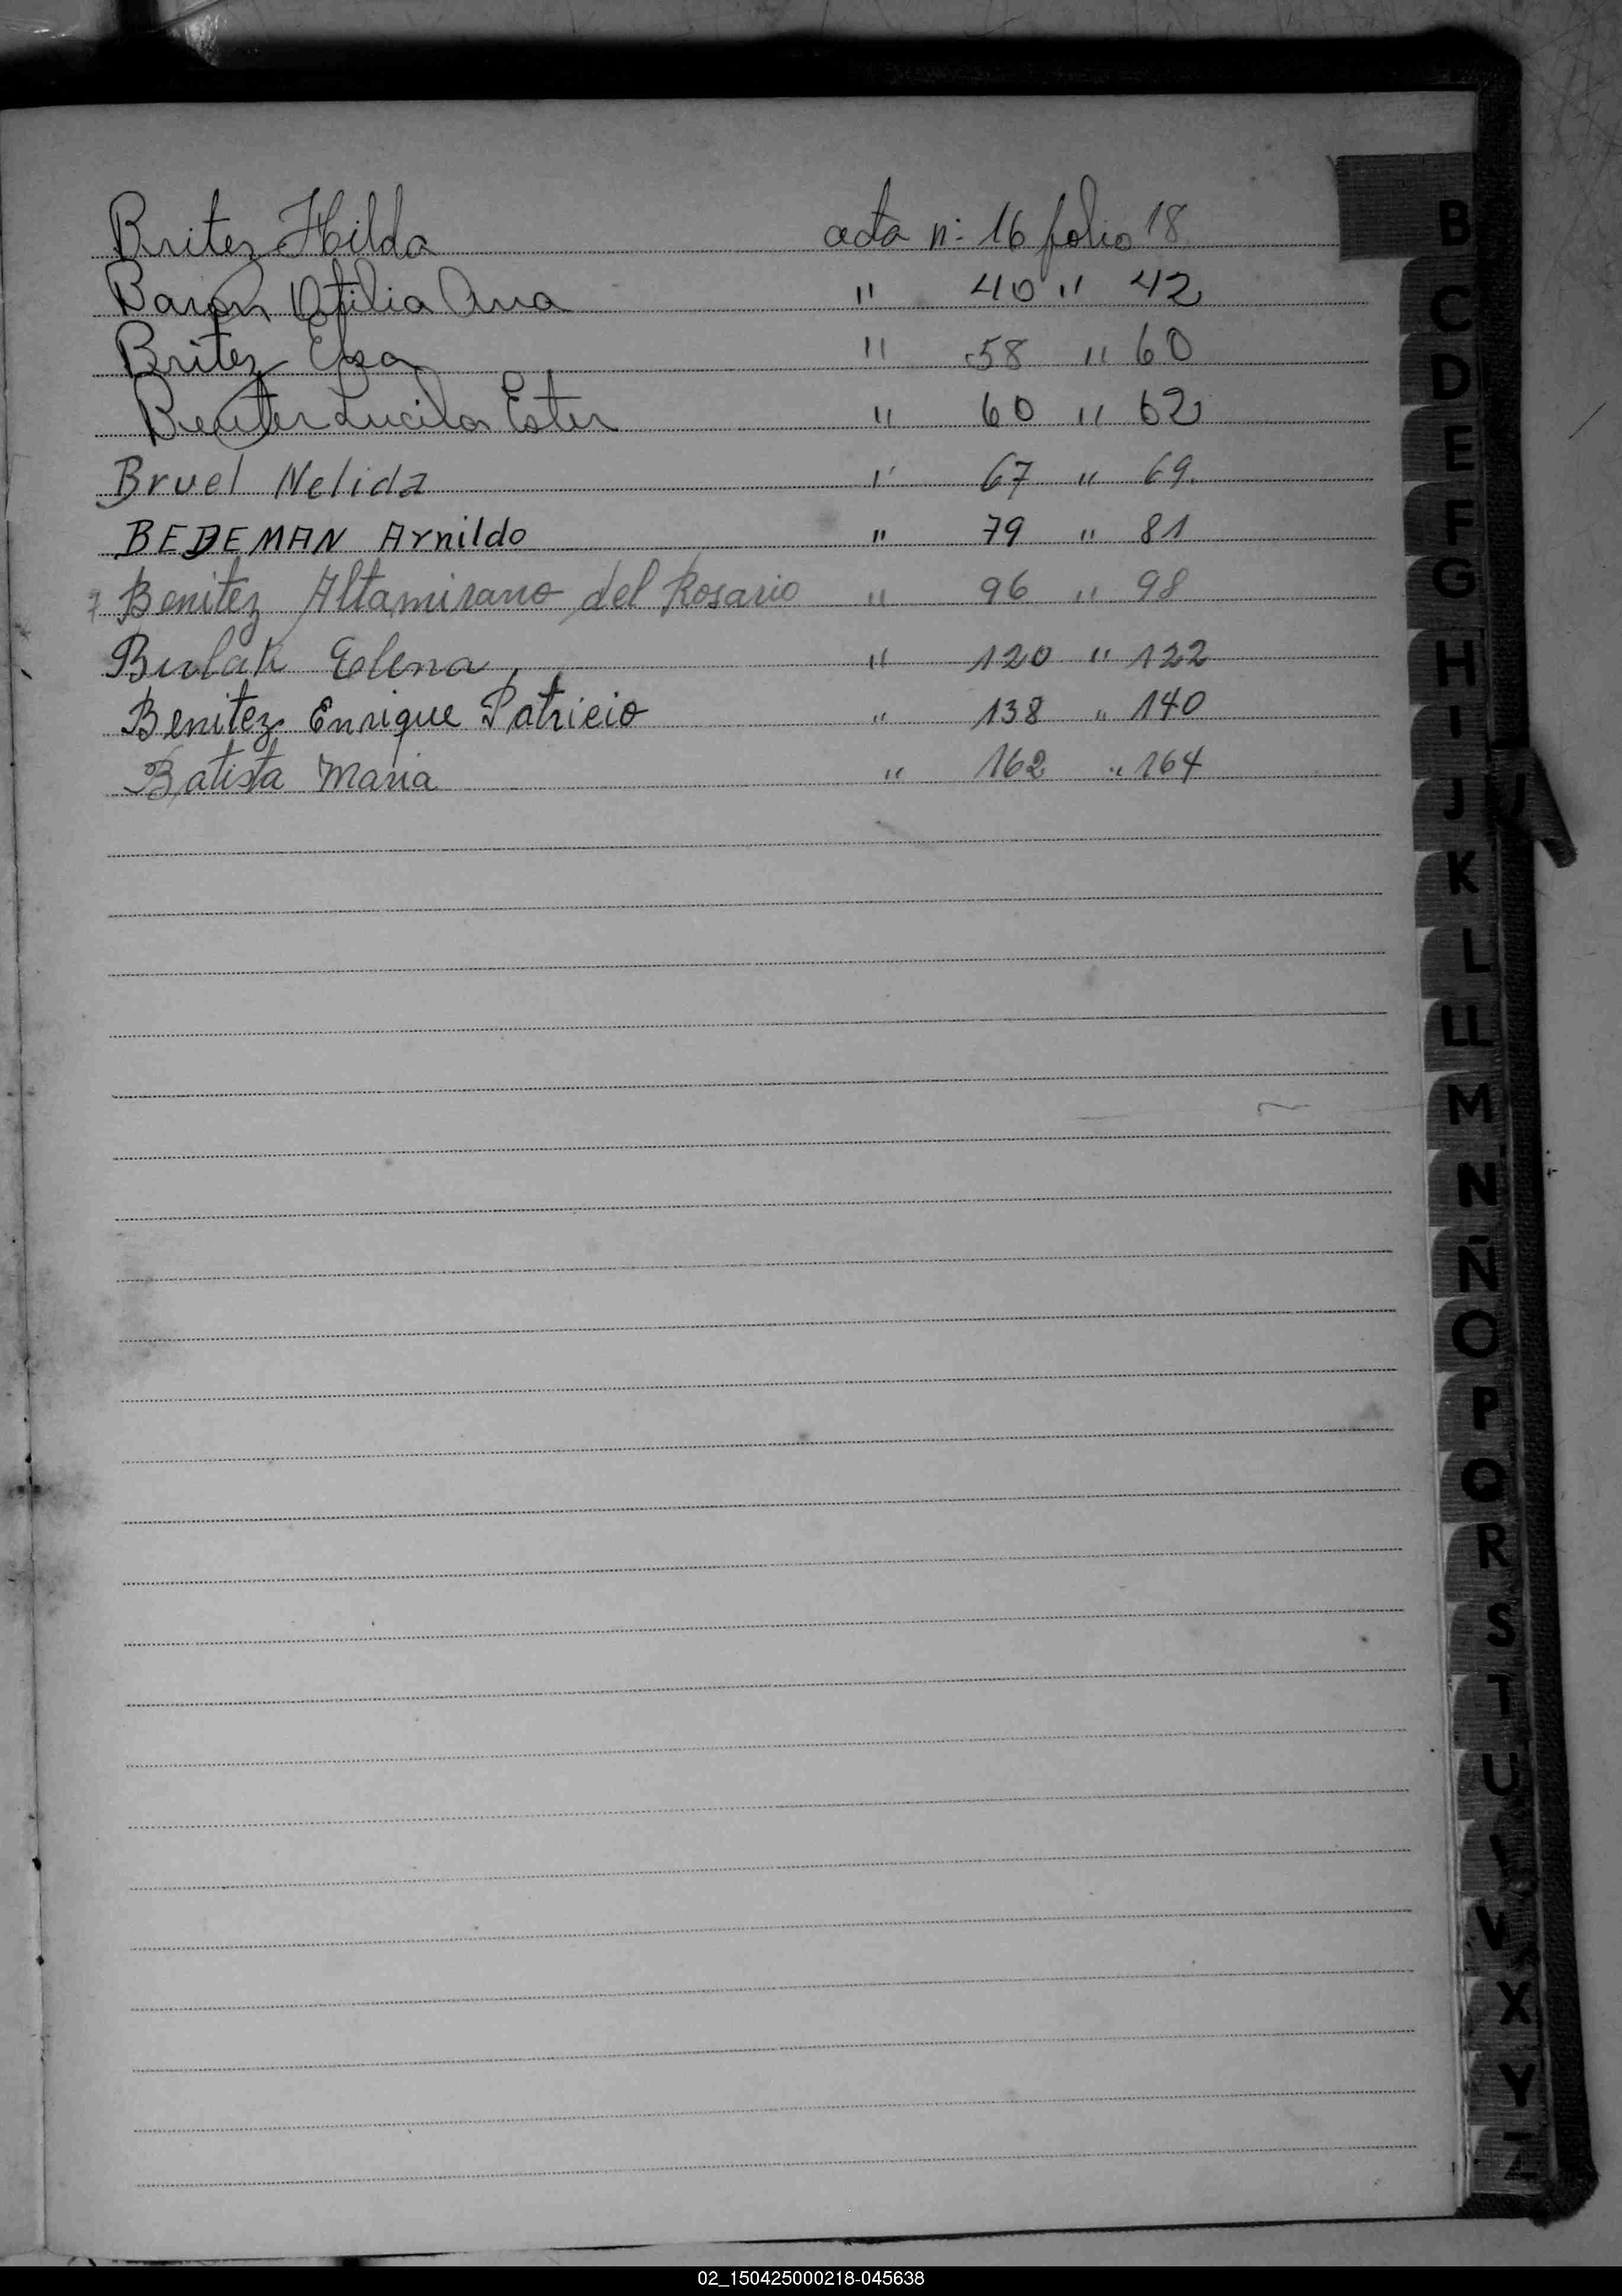 Britez Hilda acta nº 16 folio 18
Baron Otilia Ana " 40 " 42
Britez Elsa " 58 " 60
Benitez Lucila Ester " 60 " 62
Bruel Nelida " 67 " 69.
BEDEMAN Arnildo " 79 " 81
Benitez Altamirano del Rosario " 96 " 98
Bulak Elena " 120 " 122
Benitez Enrique Patricio " 138 " 140
Batista Maria " 162 " 164
B
C
D
E
F
G
H
I
J
K
L
LL
M
N
Ñ
O
P
Q
R
S
T
U
V
X
Y
Z
02_150425000218-045638